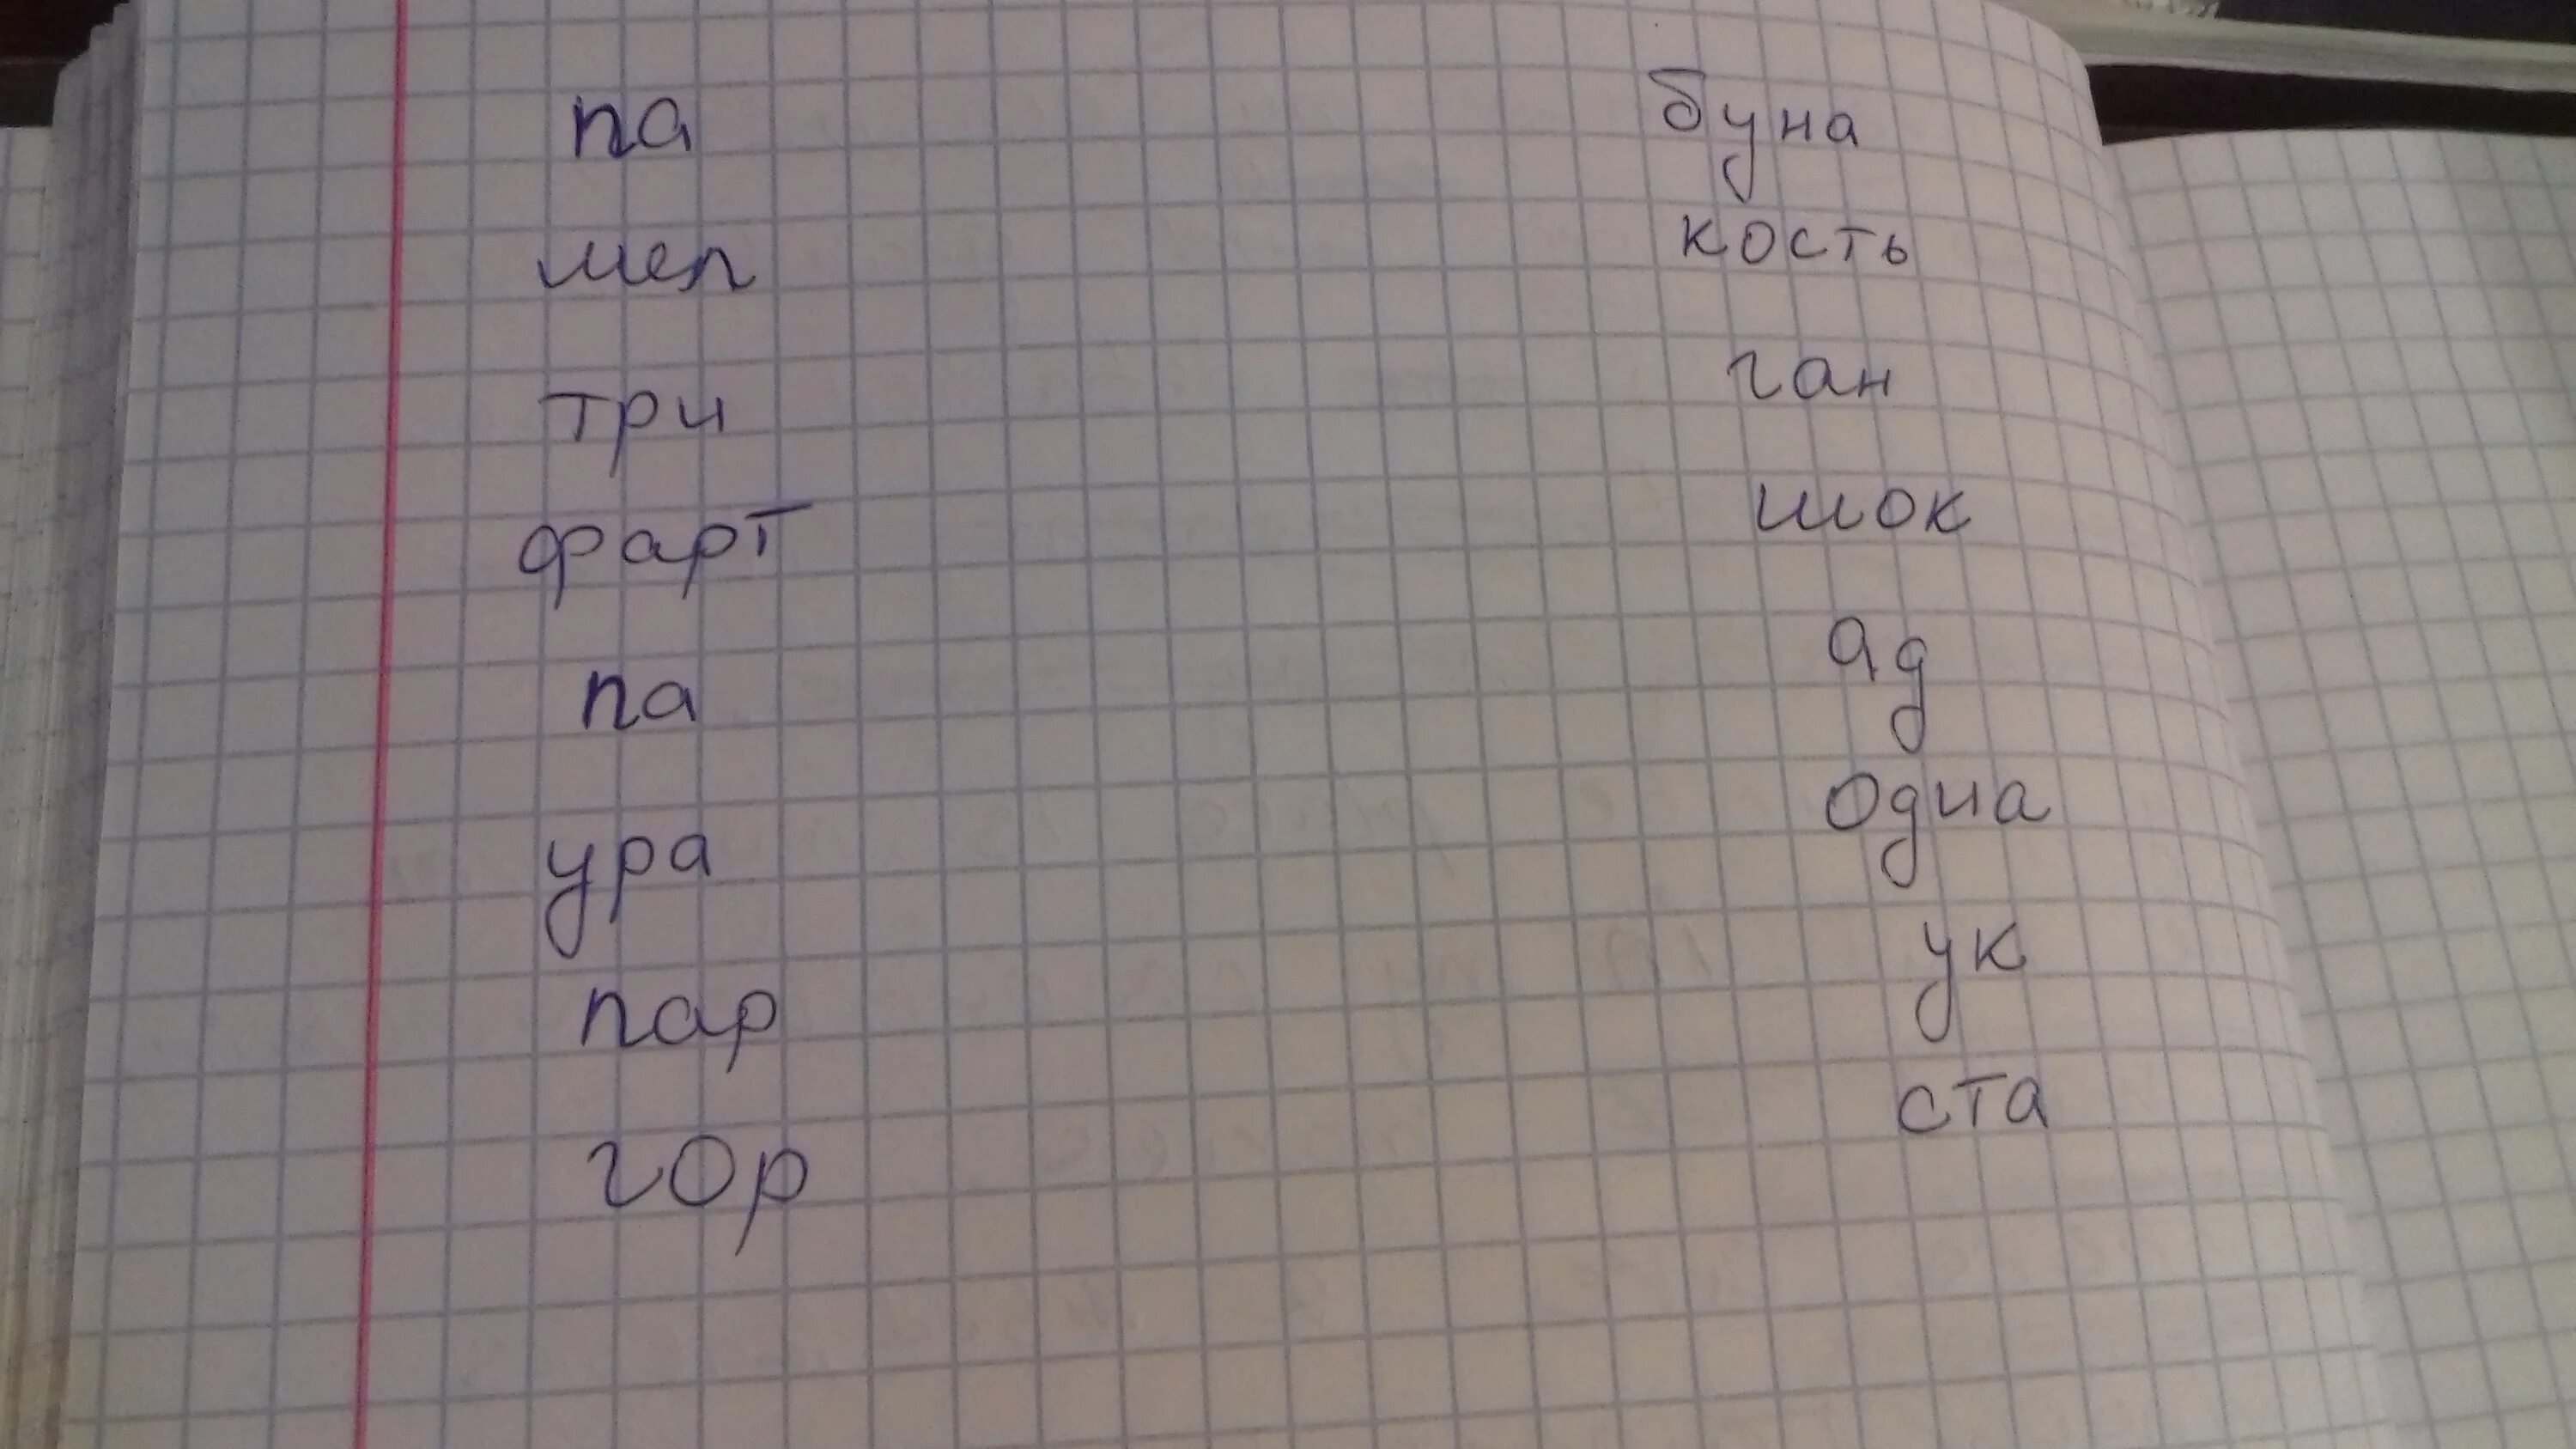 па буна
мел кость
три ган
фарт шок
па ад
ура одна
пар ук
гор ста